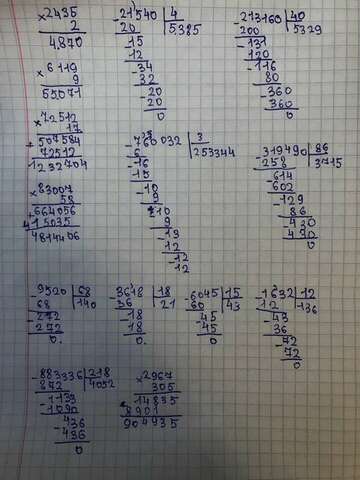 ×2435   -21540 | 4   -213160 | 40
2   20 | 5385   200 | 5329
4870   15   -131
12   120
×6119   -34   -116
9   32   80
55071   -20   -360
20   360
×72512   0   0
17
+507584   -760032 | 3   -319490 | 86
72512   6 | 253344   258 | 3715
1232704   -16   -614
15   602
×83007   -10   -129
58   9   86
+664056   -10   -430
415035   9   430
4814406   -13   0
12
-12
12
-9520 | 68   -3618 | 18   -6045 | 15   -1632 | 12
68 | 140   36 | 21   60 | 43   12 | 136
-272   -18   -45   -43
272   18   45   36
0.   0.   0   -72
72
0
-883336 | 218   ×2967
872 | 4052   305
-1133   14835
1090   8901
-436   904935
436
0